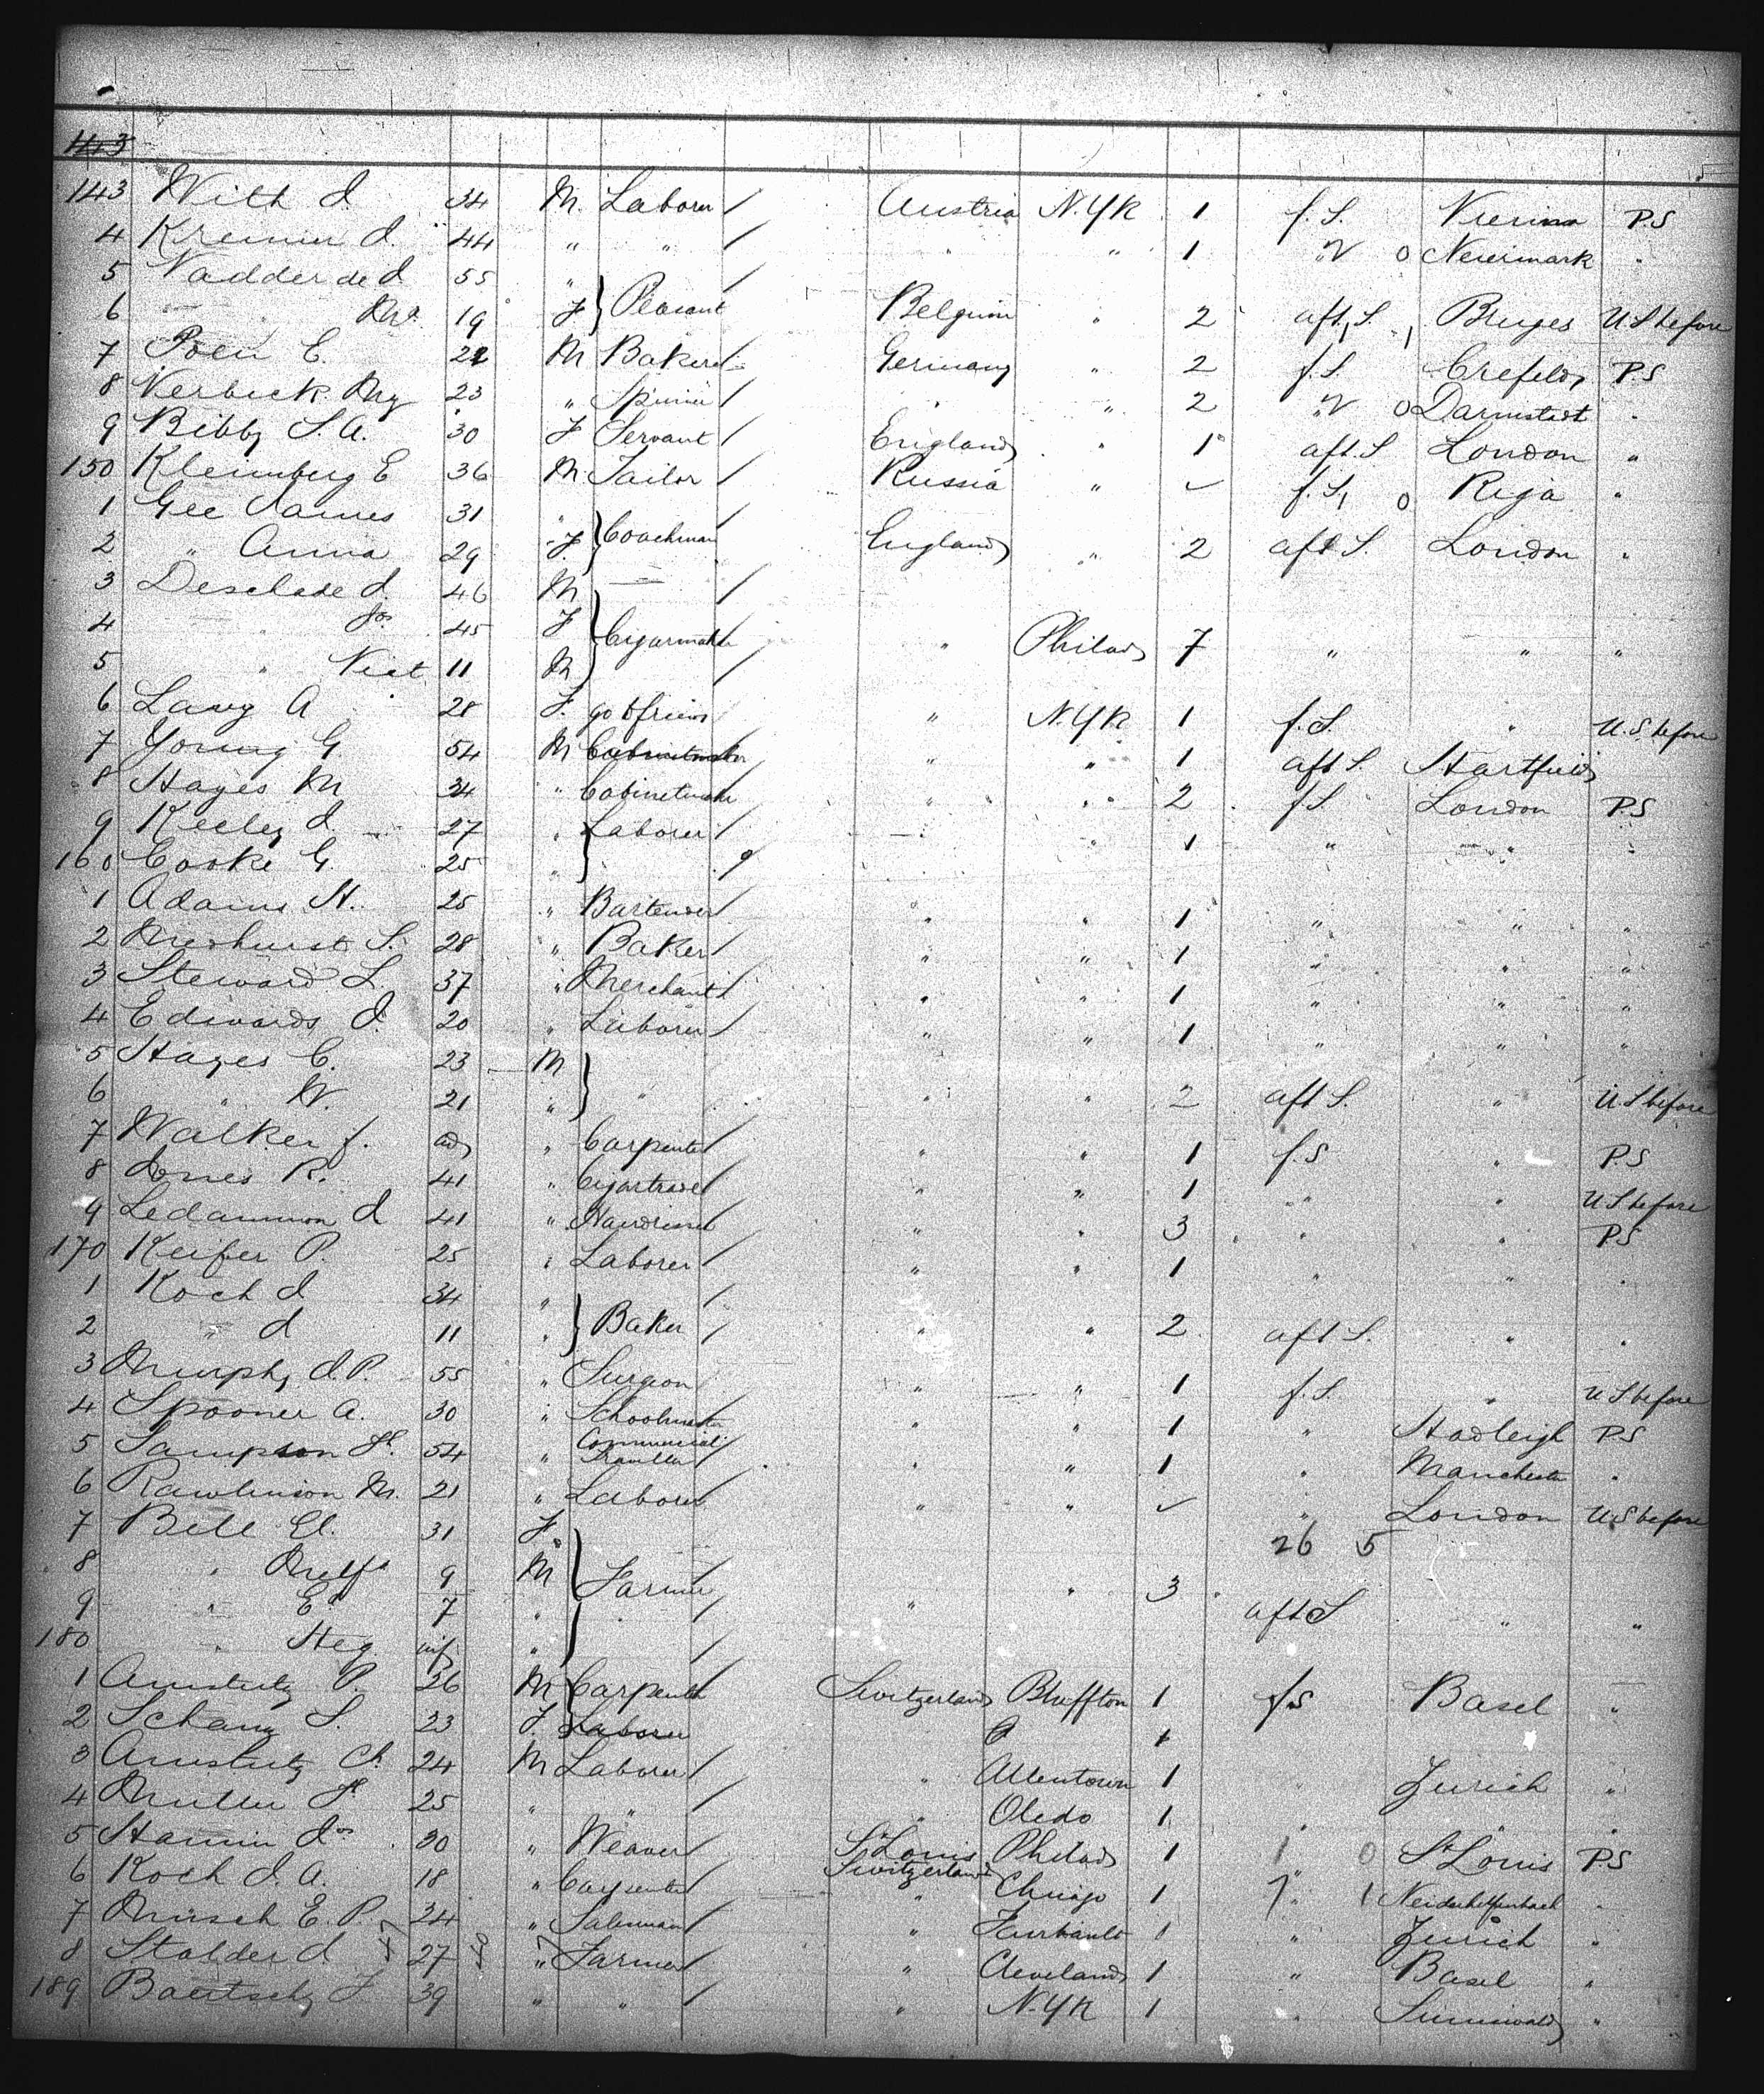 143
143 Wilh J. 34 M. Laborer / Austria N.Y.K 1 f.S. Vienna P.S
4 Kremer J. 44 " " / " " 1 " o Neumark "
5 Vadder de J 55 "
6 " 19 F } Peasant Belgium " 2 aft.S. Bruges U.S before
7 E. M Baker / Germany " 2 f.S Crefeld P.S
8 Verbeck 23 " / " " 2 " o Darmstadt "
9 Bibby S.A. 30 F Servant / England " 1 aft.S London "
150 Kleinberg E 36 M Tailor / Russia " f.S. o Riga "
1 Gee James 31 " /
2 " Anna 29 F } Coachman England " 2 aft S. London "
3 J. 46 M /
4 " Jos 45 F } Cigarmaker " Philad 7 " " "
5 " Vict 11 M /
6 A 28 F. go to friend " N.Y.K 1 f.S. " U.S. before
7 Young G. 54 M " " 1 aft S.
8 Hayes M 34 " Cabinetmaker " " 2 f.S London P.S
9 Keeley J. 27 " Laborer / " " 1 " " "
160 Cooke G. 25 " }
1 Adams H. 25 " Bartender / " " 1 " " "
2 Medhurst S. 28 " Baker / " " 1 " " "
3 Steward L. 37 " Merchant / " " 1 " " "
4 Edwards J. 20 " Laborer / " " 1 " " "
5 Hayes C. 23 M
6 " W. 21 " } " / " " 2 aft S. " U.S before
7 Walker J. ad " Carpenter / " " 1 f.S " P.S
8 Jones R. 41 " / " " 1 " " U.S before
9 J 41 " Hairdresser " " 3 " " P.S
170 Keifer P. 25 " Laborer / " " 1 " " "
1 Koch J 34 " /
2 " J 11 " } Baker / " " 2 aft S. " "
3 Murphy J.P. 55 " Surgeon / " " 1 f.S. " U.S before
4 Spooner A. 30 " Schoolmaster " " 1 " Hadleigh P.S
5 Sampson H. 54 " Commercial Traveller " " 1 " Manchester "
6 Rawlinson M. 21 " Laborer " " " London U.S before
7 Bell El. 31 F. 26 5
8 " 9 M } Farmer / " " 3
9 " E. 7 " / aft S " "
180 " Heg inf " /
1 Amstutz P. 26 M Carpenter Switzerland Bluffton 1 f.S Basel "
2 S. 23 F. Laborer 1
3 Amstutz Ch. 24 M Laborer / " Allentown 1 " Zurich "
4 Muller H 25 " " / " Oledo 1 " " "
5 Hamm Jos 30 " Weaver / St Louis Philad 1 0 St Louis P.S
6 Koch J.A. 18 " Carpenter / Switzerland Chicago 1 "
7 E.P. 34 " Salesman / " 1 " Zurich "
8 Stalder J. 27 " Farmer / " Cleveland 1 " Basel "
189 39 " " / " N.Y.K 1 " Sumiswald "